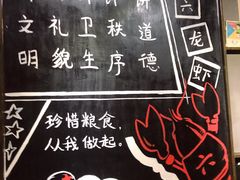 讲道德
秩序
卫生
礼貌
文明
六
龙
虾
珍惜粮食，
从我做起。